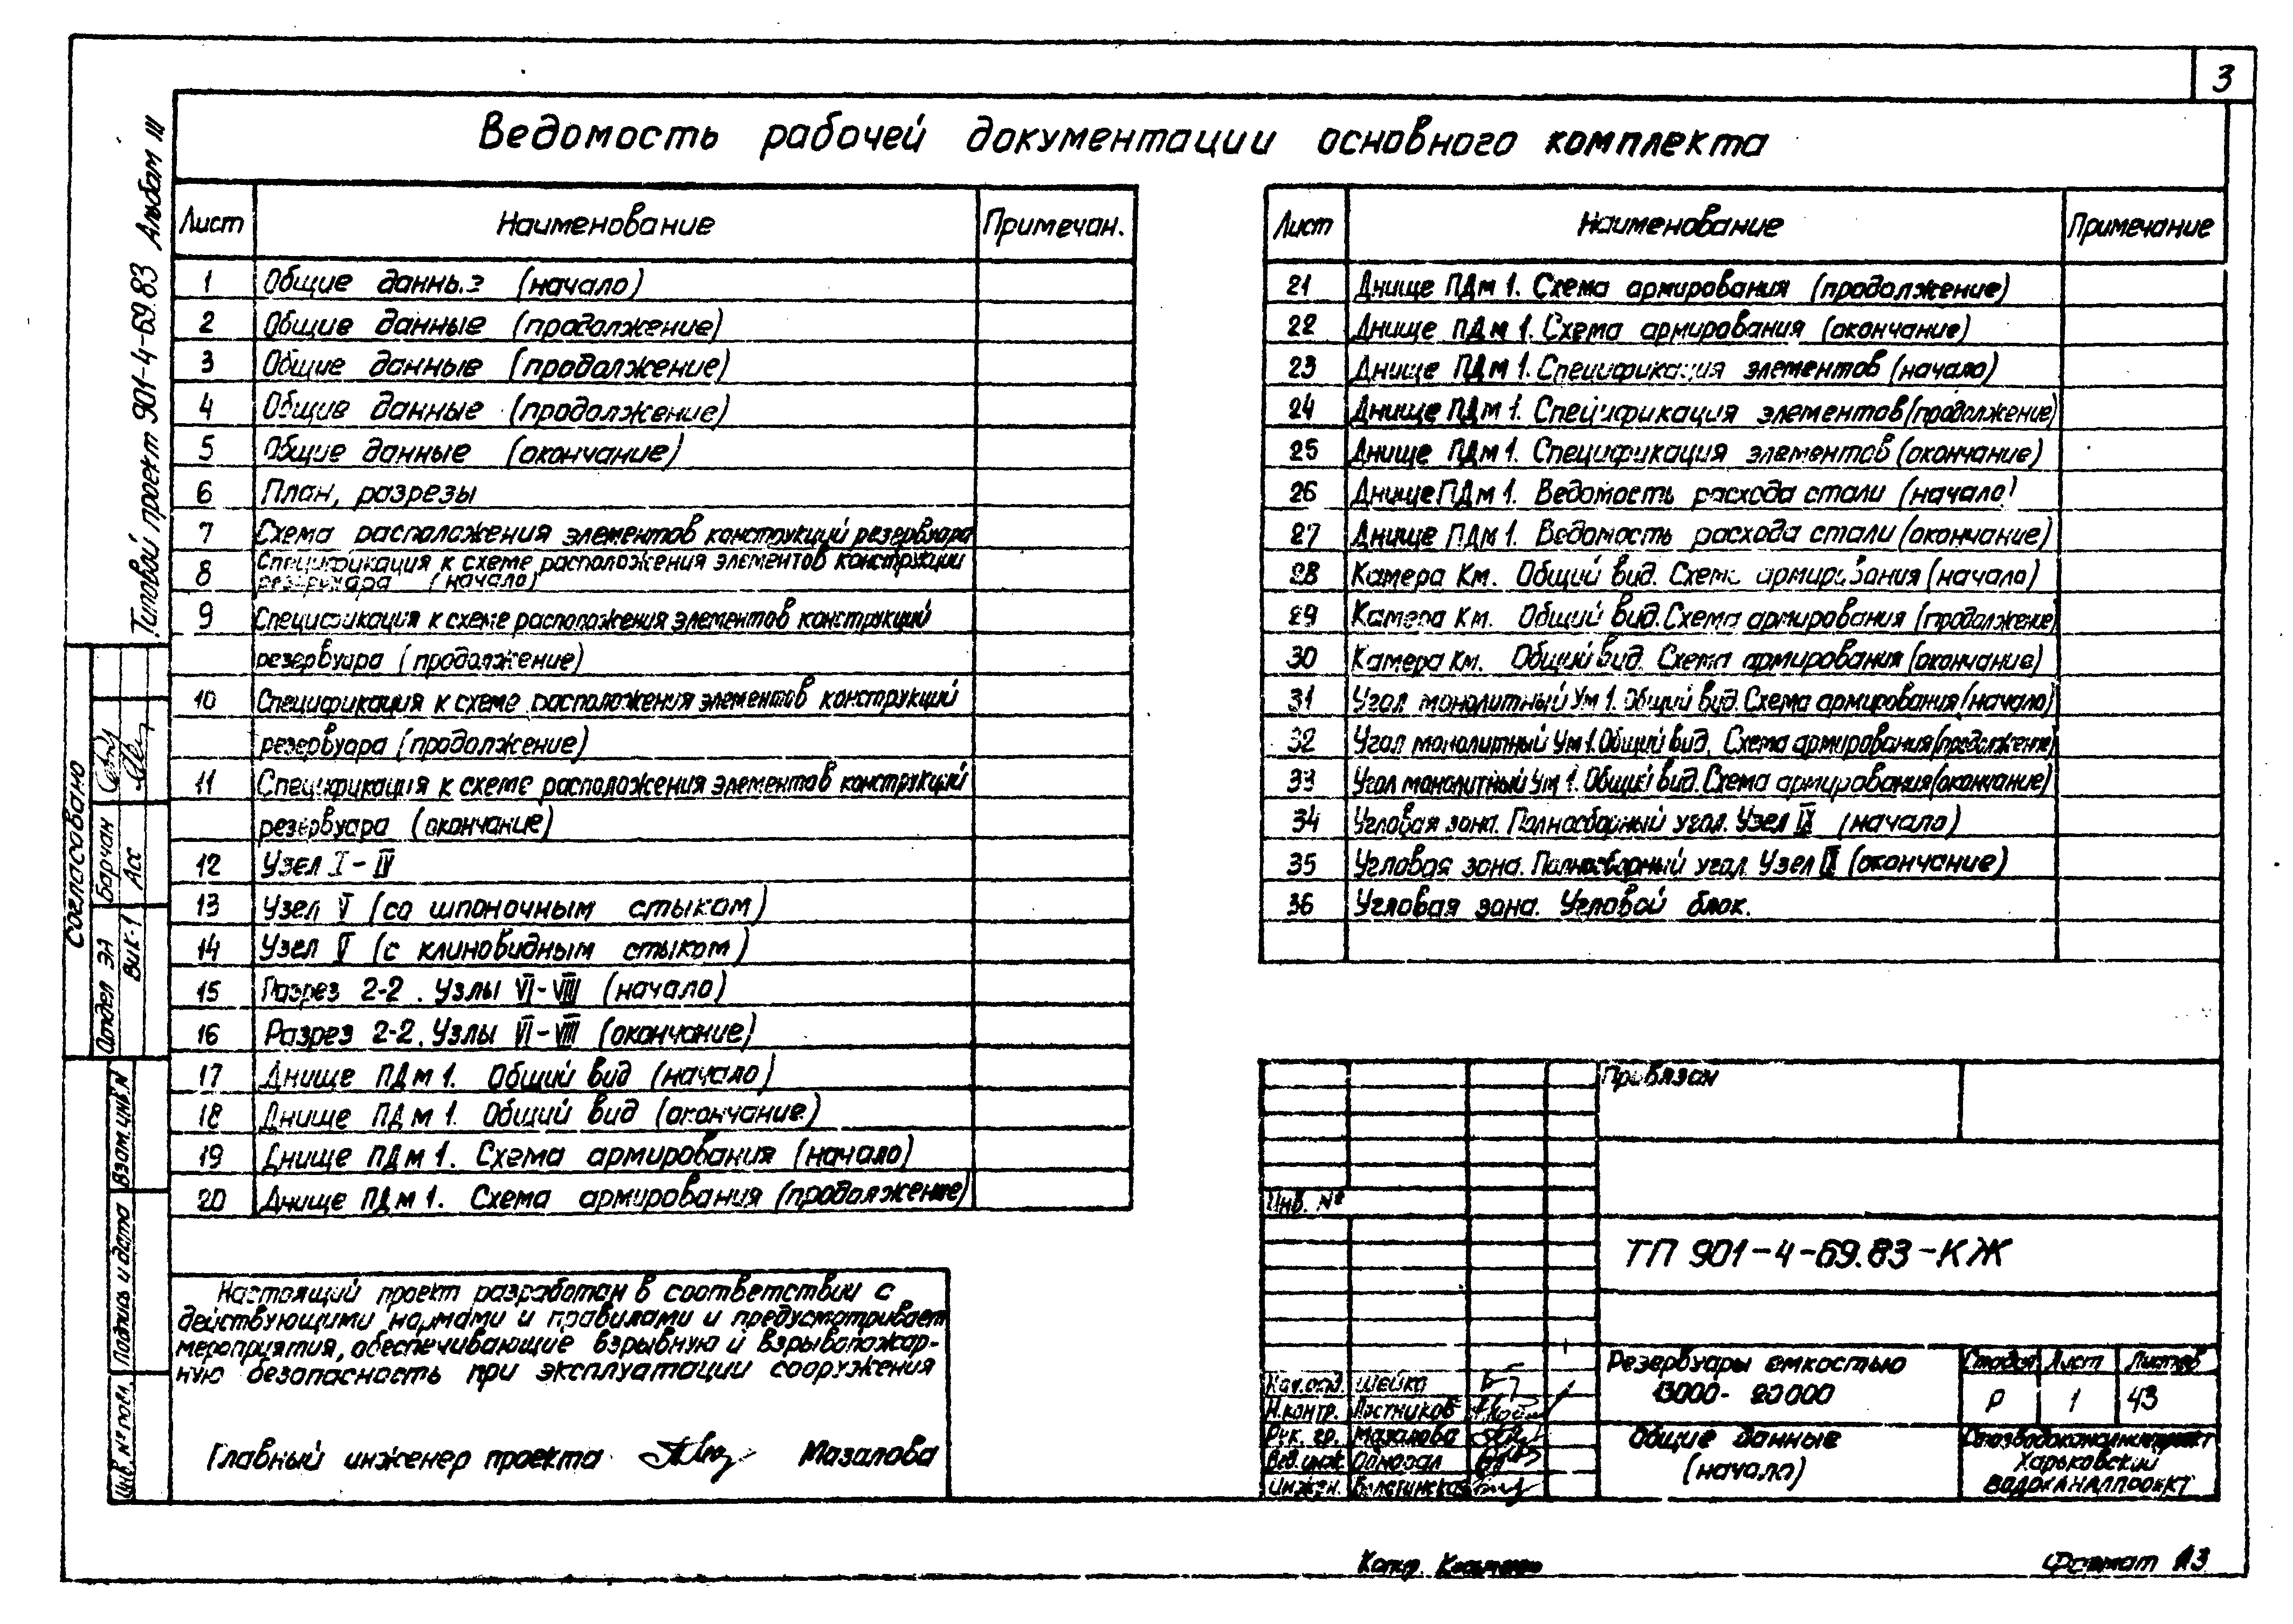 3
Ведомость рабочей документации основного комплекта
Типовой проект 901-4-69.83 Альбом III
Лист Наименование Примечан.
1 Общие данные (начало)
2 Общие данные (продолжение)
3 Общие данные (продолжение)
4 Общие данные (продолжение)
5 Общие данные (окончание)
6 План, разрезы
7 Схема расположения элементов конструкций резервуара
8 Спецификация к схеме расположения элементов конструкции
резервуара (начало)
9 Спецификация к схеме расположения элементов конструкций
резервуара (продолжение)
10 Спецификация к схеме расположения элементов конструкций
резервуара (продолжение)
11 Спецификация к схеме расположения элементов конструкций
резервуара (окончание)
12 Узел I - IV
13 Узел V (со шпоночным стыком)
14 Узел V (с клиновидным стыком)
15 Разрез 2-2. Узлы VI-VIII (начало)
16 Разрез 2-2. Узлы VI-VIII (окончание)
17 Днище ПДм 1. Общий вид (начало)
18 Днище ПДм 1. Общий вид (окончание)
19 Днище ПДм 1. Схема армирования (начало)
20 Днище ПДм 1. Схема армирования (продолжение)
Лист Наименование Примечание
21 Днище ПДм 1. Схема армирования (продолжение)
22 Днище ПДм 1. Схема армирования (окончание)
23 Днище ПДм 1. Спецификация элементов (начало)
24 Днище ПДм 1. Спецификация элементов (продолжение)
25 Днище ПДм 1. Спецификация элементов (окончание)
26 Днище ПДм 1. Ведомость расхода стали (начало)
27 Днище ПДм 1. Ведомость расхода стали (окончание)
28 Камера Км. Общий вид. Схема армирования (начало)
29 Камера Км. Общий вид. Схема армирования (продолжение)
30 Камера Км. Общий вид. Схема армирования (окончание)
31 Угол монолитный Ум 1. Общий вид. Схема армирования (начало)
32 Угол монолитный Ум 1. Общий вид. Схема армирования (продолжение)
33 Угол монолитный Ум 1. Общий вид. Схема армирования (окончание)
34 Угловая зона. Полносборный угол. Узел IX (начало)
35 Угловая зона. Полносборный угол. Узел IX (окончание)
36 Угловая зона. Угловой блок.
Согласовано
Отдел ЭА Барчан
ВиК-1 Асс
Взам.инв.N
Подпись и дата
Инв. N° подл
Настоящий проект разработан в соответствии с
действующими нормами и правилами и предусматривает
мероприятия, обеспечивающие взрывную и взрывопожар-
ную безопасность при эксплуатации сооружения
Главный инженер проекта Мазалова
Привязан
Инв. №
ТП 901-4-69.83-КЖ
Нач.отд. Шейко
Н.контр. Постников
Рук. гр. Мазалова
Вед.инж.
Инжен.
Резервуары емкостью
13000- 20000
Стадия Лист Листов
Р 1 43
Общие данные
(начало)
Союзводоканалниипроект
Харьковский
Водоканалпроект
Копир.
Формат А3